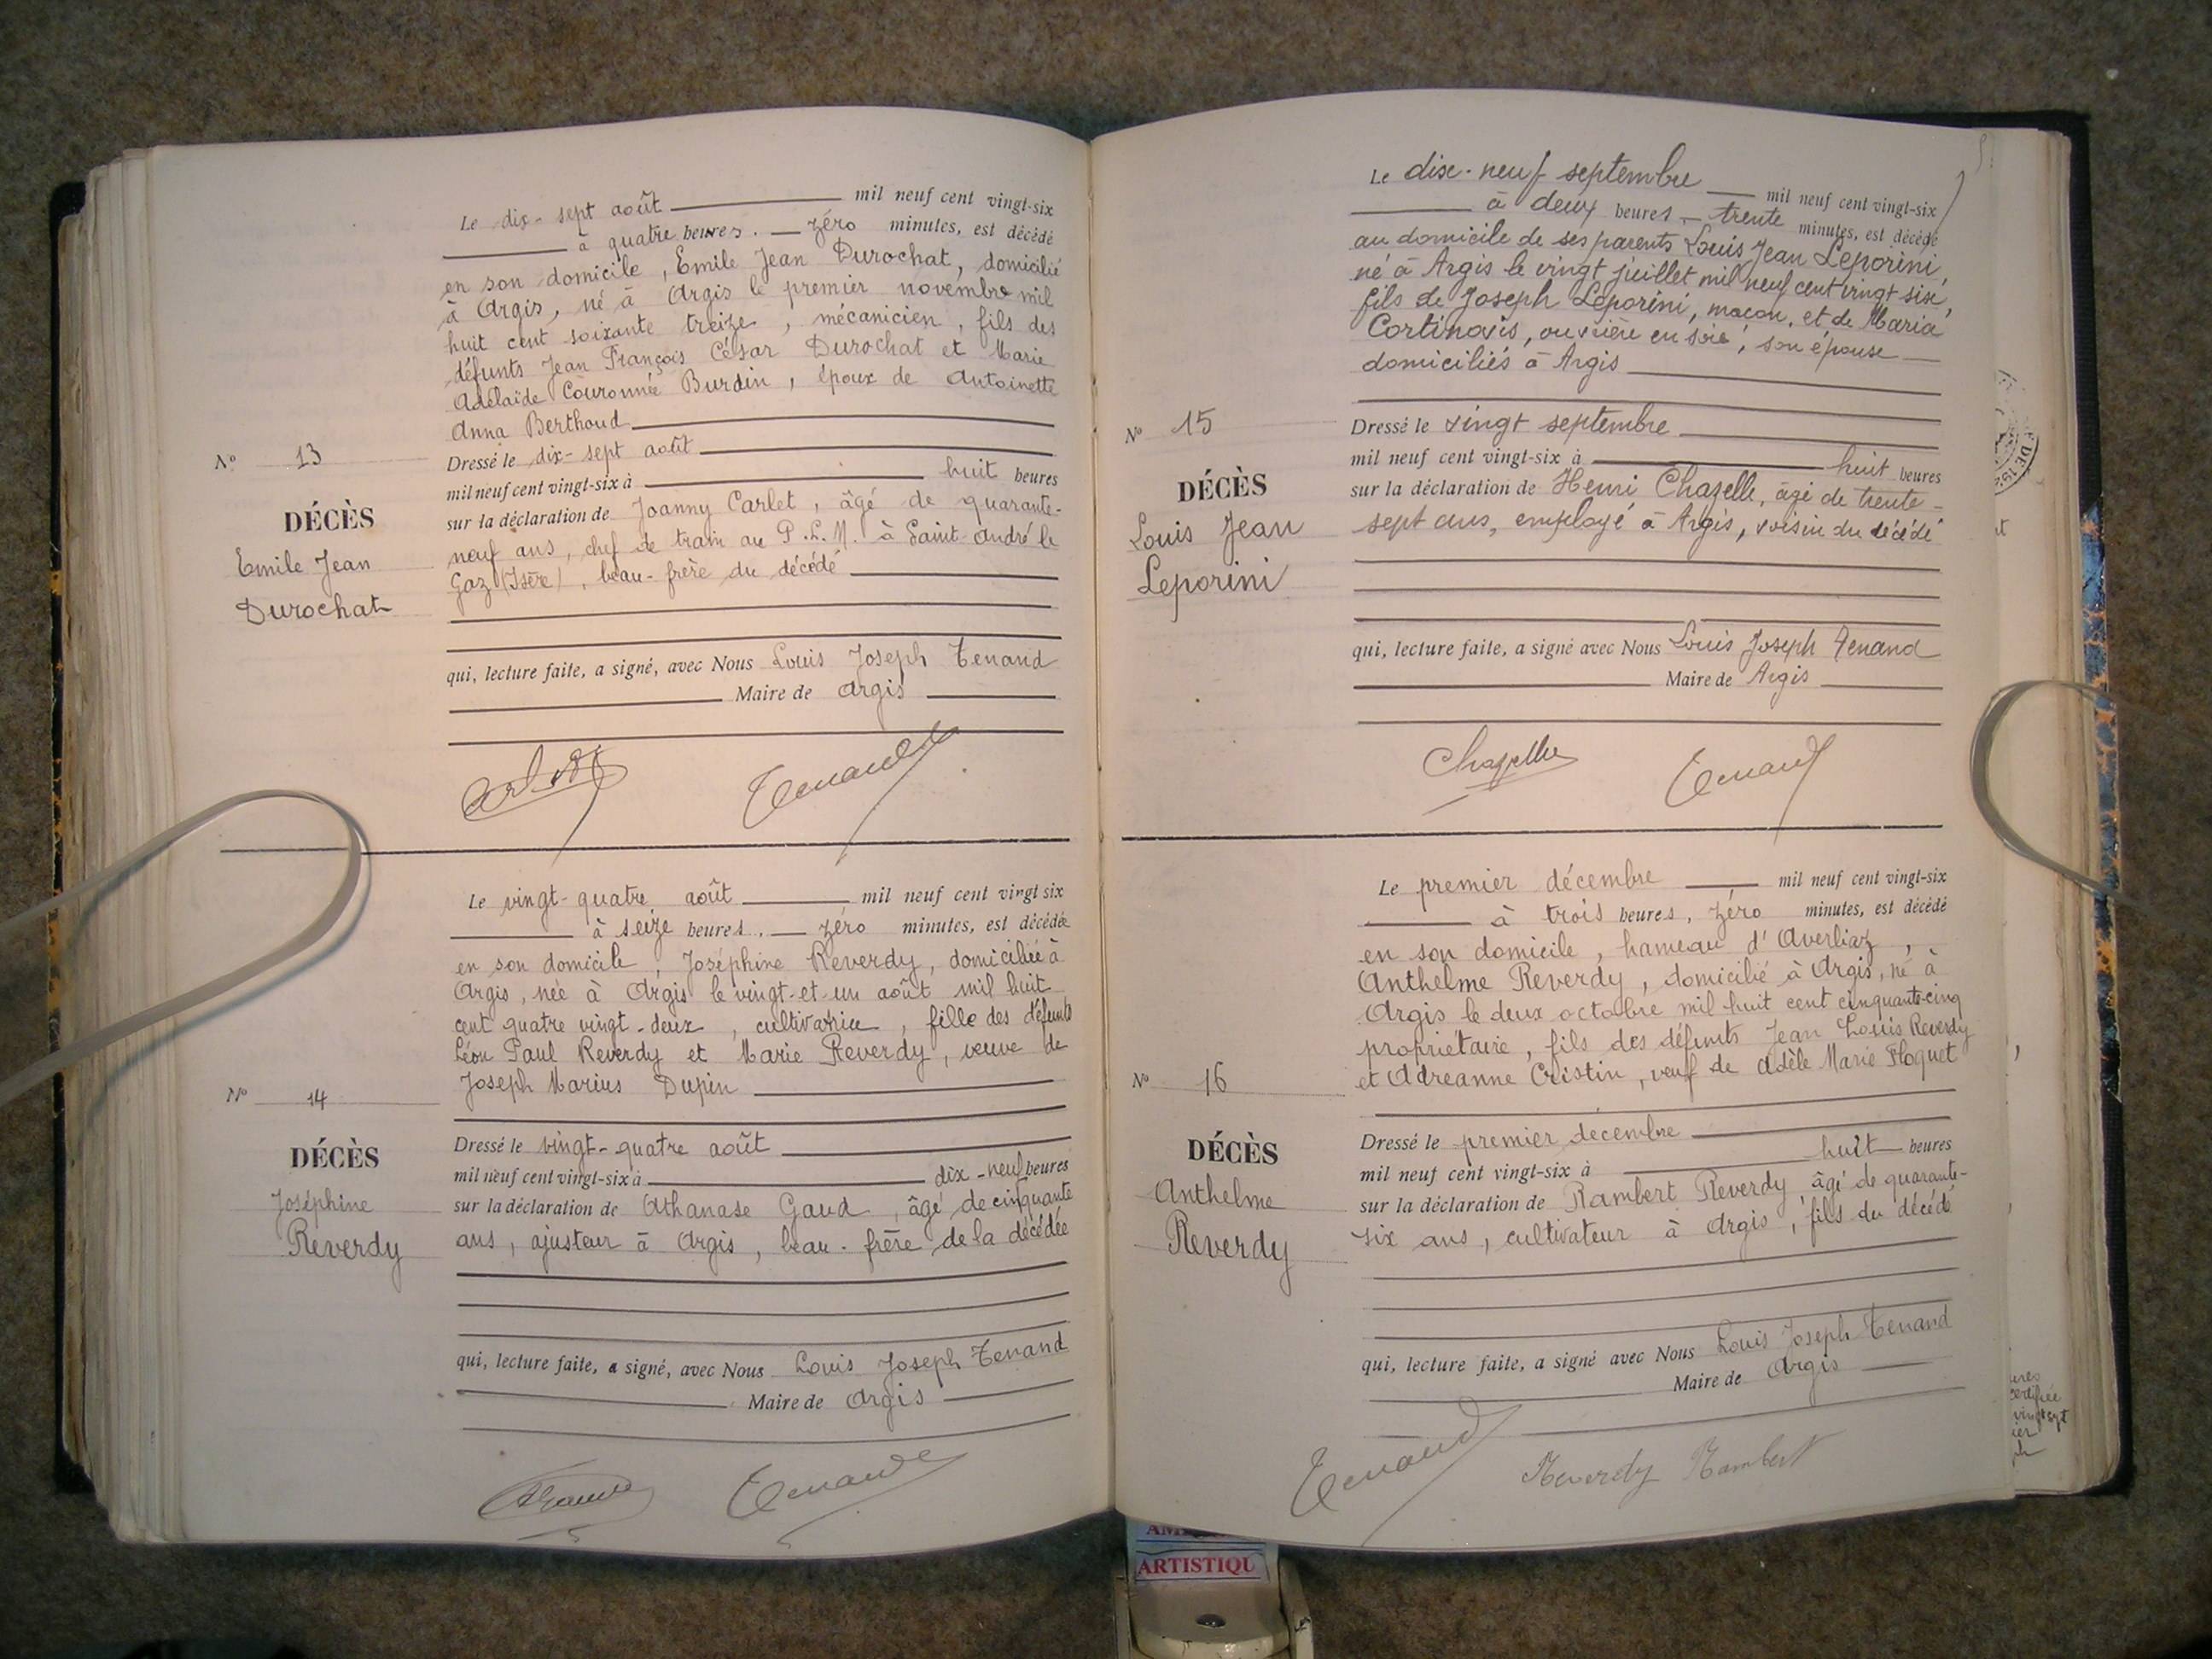 Le dix-sept août mil neuf cent vingt-six
à quatre heures. zéro minutes, est décédé
en son domicile, Emile Jean Durochat, domicilié
à Argis, né à Argis le premier novembre mil
huit cent soixante treize, mécanicien, fils des
défunts Jean François César Durochat et Marie
Adélaïde Couronnée Burdin, époux de Antoinette
Anna Berthoud
Nº 13
Dressé le dix-sept août
mil neuf cent vingt-six à huit heures
DÉCÈS
Emile Jean
Durochat
sur la déclaration de Joanny Carlet, âgé de quarante-
neuf ans, chef de train au P.L.M. à Saint-André le
Gaz (Isère), beau-frère du décédé
qui, lecture faite, a signé, avec Nous Louis Joseph Tenand
Maire de Argis
Tenand
Le vingt-quatre août mil neuf cent vingt six
à seize heures. zéro minutes, est décédée
en son domicile, Joséphine Reverdy, domiciliée à
Argis, née à Argis le vingt-et-un août mil huit
cent quatre vingt-deux, cultivatrice, fille des défunts
Léon Paul Reverdy et Marie Reverdy, veuve de
Joseph Marius Dupin
Nº 14
DÉCÈS
Joséphine
Reverdy
Dressé le vingt-quatre août
mil neuf cent vingt-six à dix-neuf heures
sur la déclaration de Athanase Gaud, âgé de cinquante
ans, ajusteur à Argis, beau-frère de la décédée
qui, lecture faite, a signé, avec Nous Louis Joseph Tenand
Maire de Argis
Tenand
Le dix-neuf septembre mil neuf cent vingt-six
à deux heures trente minutes, est décédé
au domicile de ses parents Louis Jean Leporini,
né à Argis le vingt juillet mil neuf cent vingt six,
fils de Joseph Leporini, maçon, et de Maria
Cortinovis, ouvrière en soie, son épouse
domiciliés à Argis
Nº 15
DÉCÈS
Louis Jean
Leporini
Dressé le vingt septembre
mil neuf cent vingt-six à huit heures
sur la déclaration de Henri Chazelle, âgé de trente-
sept ans, employé à Argis, voisin du décédé
qui, lecture faite, a signé avec Nous Louis Joseph Tenand
Maire de Argis
Chazelle Tenand
Le premier décembre mil neuf cent vingt-six
à trois heures, zéro minutes, est décédé
en son domicile, hameau d'Averliaz,
Anthelme Reverdy, domicilié à Argis, né à
Argis le deux octobre mil huit cent cinquante-cinq
propriétaire, fils des défunts Jean Louis Reverdy
et Adreanne Cristin, veuf de Adèle Marie Floquet
Nº 16
DÉCÈS
Anthelme
Reverdy
Dressé le premier décembre
mil neuf cent vingt-six à huit heures
sur la déclaration de Rambert Reverdy, âgé de quarante-
six ans, cultivateur à Argis, fils du décédé
qui, lecture faite, a signé avec Nous Louis Joseph Tenand
Maire de Argis
Tenand Reverdy Rambert
ARTISTIQU